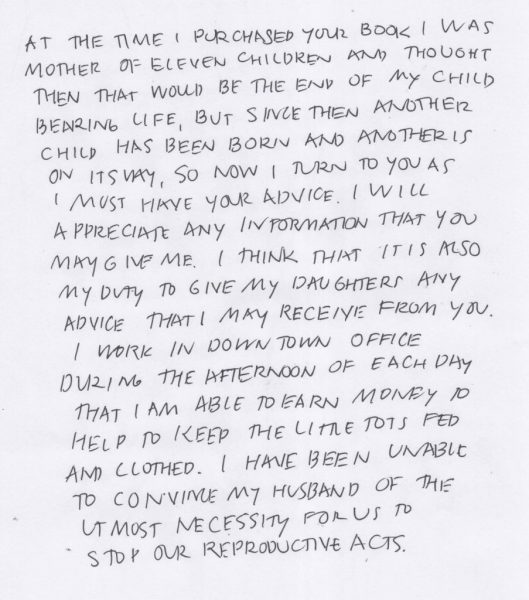 AT THE TIME I PURCHASED YOUR BOOK I WAS
MOTHER OF ELEVEN CHILDREN AND THOUGHT
THEN THAT WOULD BE THE END OF MY CHILD
BEARING LIFE, BUT SINCE THEN ANOTHER
CHILD HAS BEEN BORN AND ANOTHER IS
ON ITS WAY, SO NOW I TURN TO YOU AS
I MUST HAVE YOUR ADVICE. I WILL
APPRECIATE ANY INFORMATION THAT YOU
MAY GIVE ME. I THINK THAT IT IS ALSO
MY DUTY TO GIVE MY DAUGHTERS ANY
ADVICE THAT I MAY RECEIVE FROM YOU.
I WORK IN DOWN TOWN OFFICE
DURING THE AFTERNOON OF EACH DAY
THAT I AM ABLE TO EARN MONEY TO
HELP TO KEEP THE LITTLE TOTS FED
AND CLOTHED. I HAVE BEEN UNABLE
TO CONVINCE MY HUSBAND OF THE
UTMOST NECESSITY FOR US TO
STOP OUR REPRODUCTIVE ACTS.